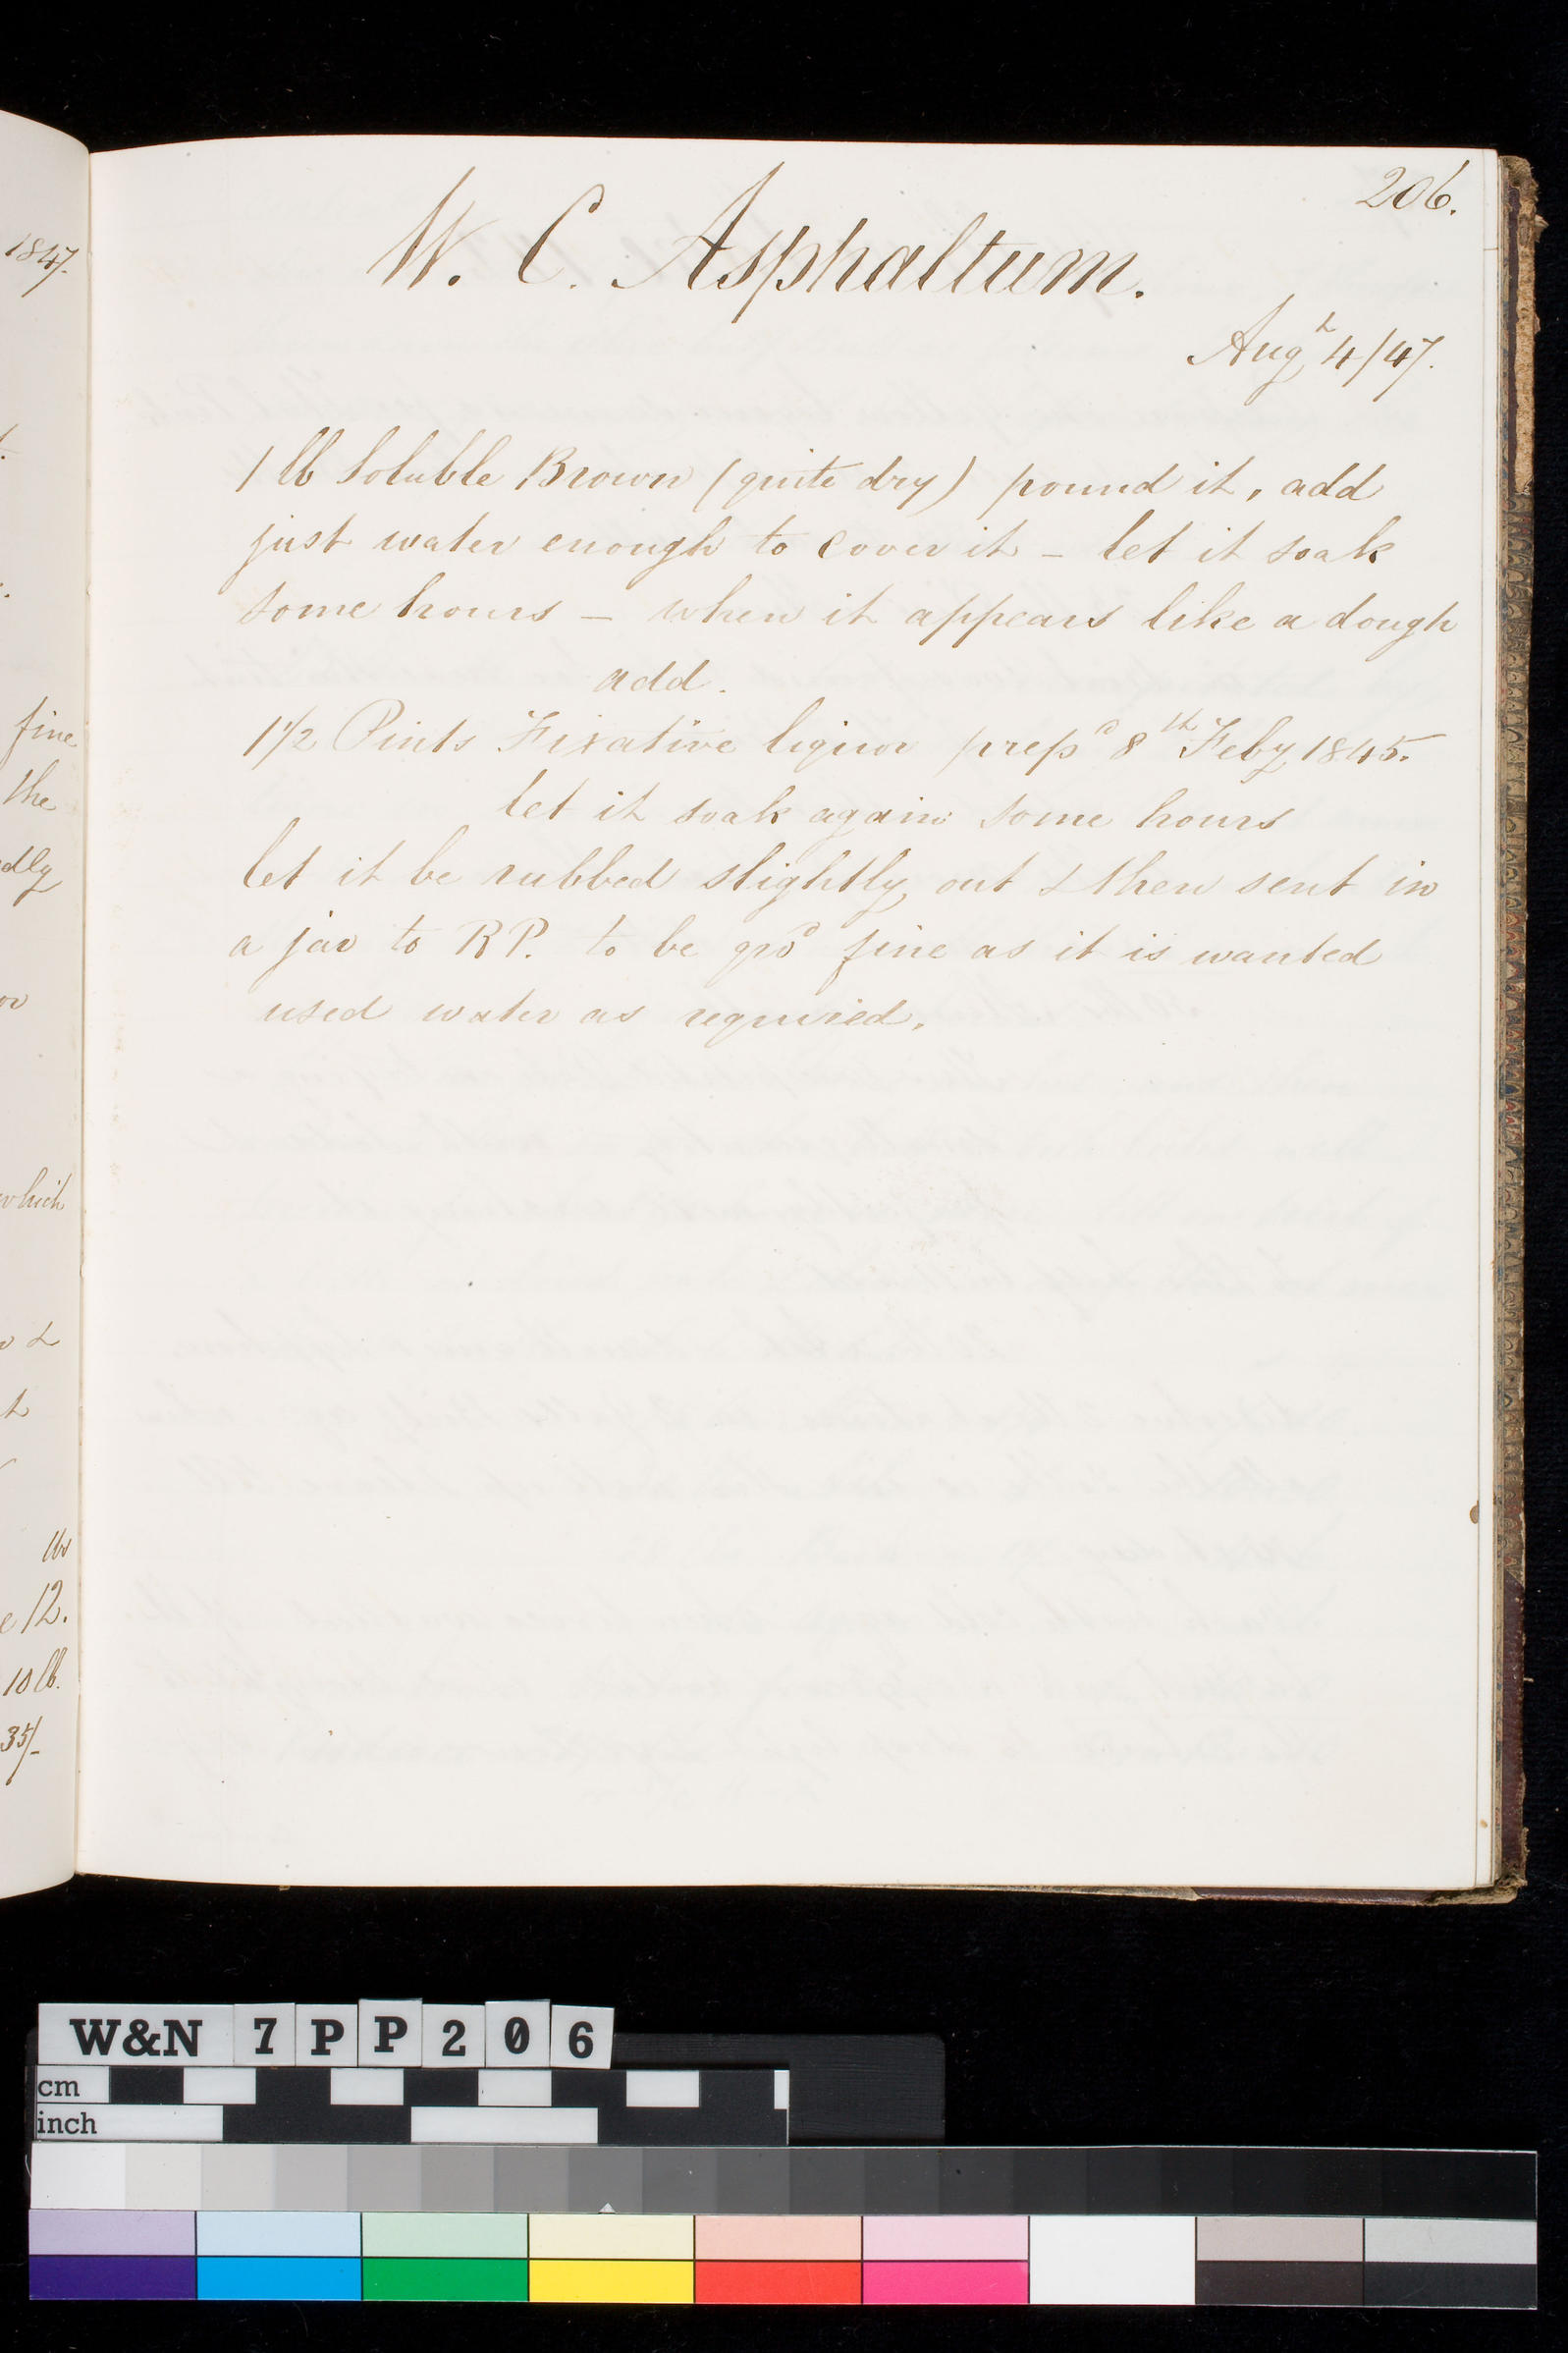 206.
W. C. Asphaltum.
Augt 4/47.
1 lb Soluble Brown (quite dry) pound it, add
just water enough to cover it – let it soak
some hours – when it appears like a dough
add.
1 1/2 Pints Fixative liquor prepd 8th Feby 1845.
let it soak again some hours
let it be rubbed slightly out & then sent in
a jar to RP. to be grd fine as it is wanted
used water as required.
1847.
fine
the
dly
which
e 12.
10 lb.
35/-
W&N 7PP206
cm
inch